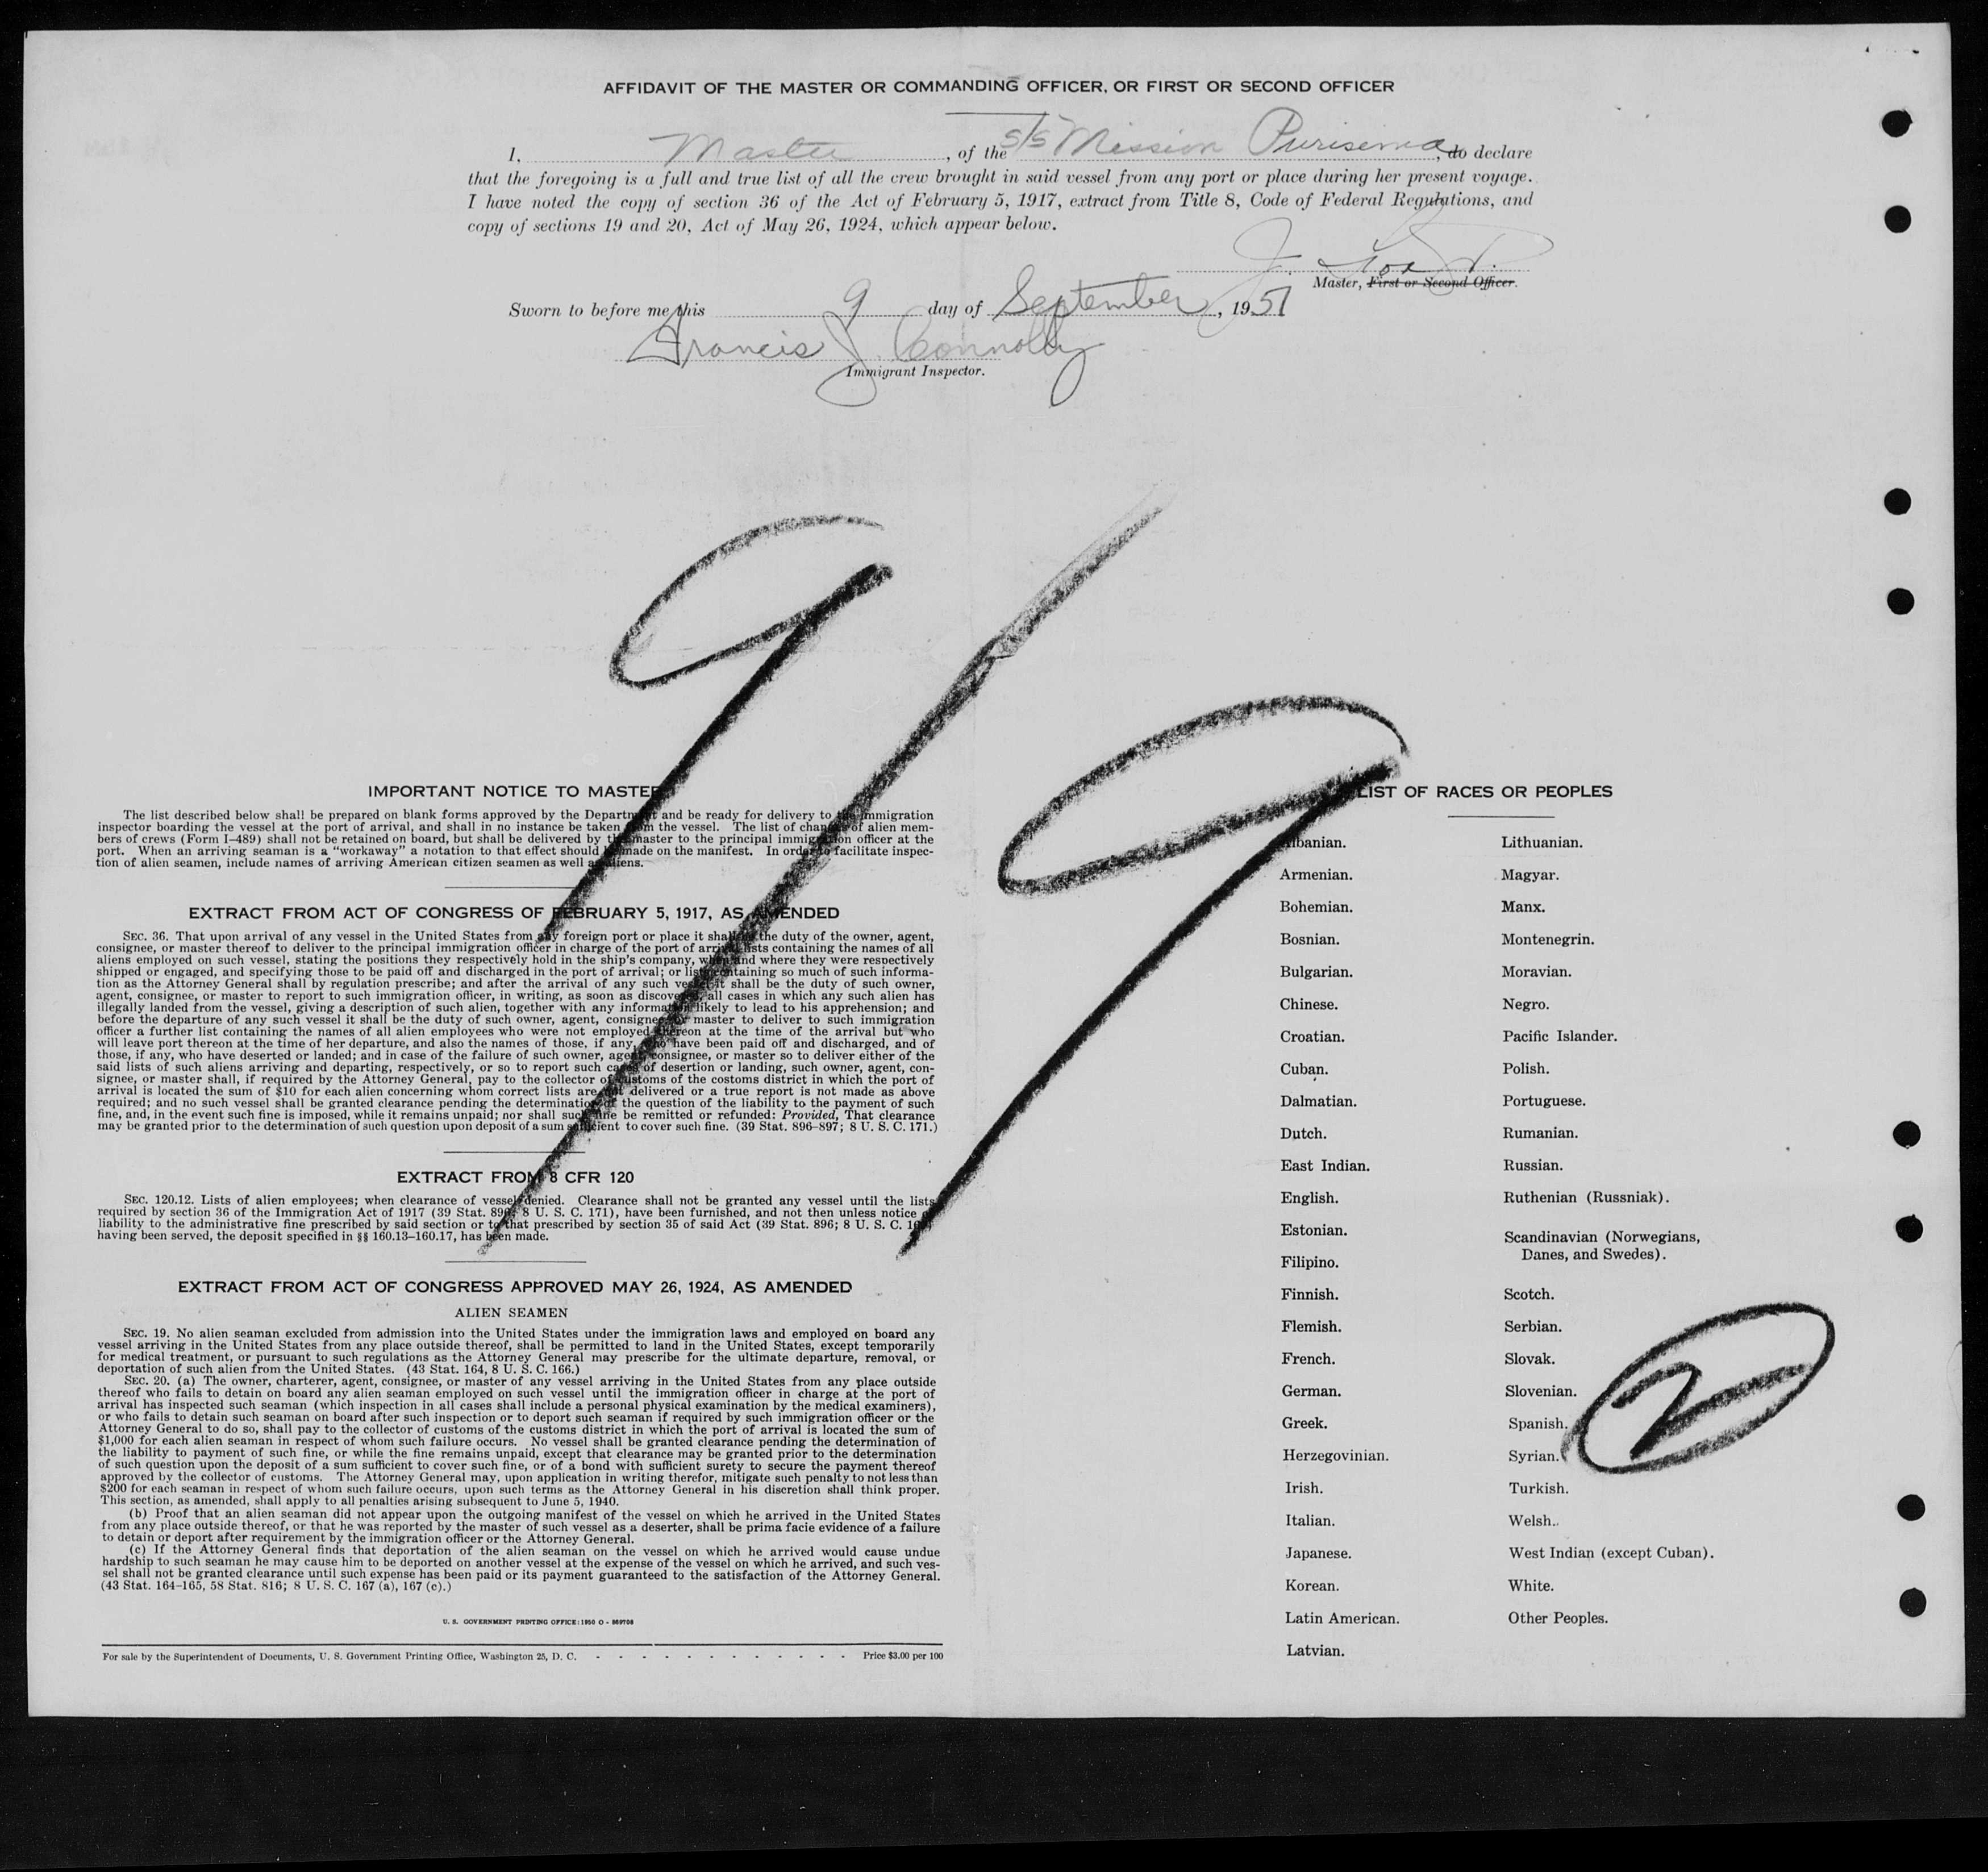 AFFIDAVIT OF THE MASTER OR COMMANDING OFFICER, OR FIRST OR SECOND OFFICER
I, Master, of the S/S Mission Purisima, do declare
that the foregoing is a full and true list of all the crew brought in said vessel from any port or place during her present voyage.
I have noted the copy of section 36 of the Act of February 5, 1917, extract from Title 8, Code of Federal Regulations, and
copy of sections 19 and 20, Act of May 26, 1924, which appear below.
J.
Master, First or Second Officer.
Sworn to before me this 9 day of September, 1951
Francis J. Connolly
Immigrant Inspector.
9/9
IMPORTANT NOTICE TO MASTER
The list described below shall be prepared on blank forms approved by the Department and be ready for delivery to the immigration
inspector boarding the vessel at the port of arrival, and shall in no instance be taken from the vessel. The list of changes of alien mem-
bers of crews (Form I–489) shall not be retained on board, but shall be delivered by the master to the principal immigration officer at the
port. When an arriving seaman is a "workaway" a notation to that effect should be made on the manifest. In order to facilitate inspec-
tion of alien seamen, include names of arriving American citizen seamen as well as aliens.
EXTRACT FROM ACT OF CONGRESS OF FEBRUARY 5, 1917, AS AMENDED
SEC. 36. That upon arrival of any vessel in the United States from any foreign port or place it shall be the duty of the owner, agent,
consignee, or master thereof to deliver to the principal immigration officer in charge of the port of arrival lists containing the names of all
aliens employed on such vessel, stating the positions they respectively hold in the ship's company, when and where they were respectively
shipped or engaged, and specifying those to be paid off and discharged in the port of arrival; or lists containing so much of such informa-
tion as the Attorney General shall by regulation prescribe; and after the arrival of any such vessel it shall be the duty of such owner,
agent, consignee, or master to report to such immigration officer, in writing, as soon as discovered, all cases in which any such alien has
illegally landed from the vessel, giving a description of such alien, together with any information likely to lead to his apprehension; and
before the departure of any such vessel it shall be the duty of such owner, agent, consignee, or master to deliver to such immigration
officer a further list containing the names of all alien employees who were not employed thereon at the time of the arrival but who
will leave port thereon at the time of her departure, and also the names of those, if any, who have been paid off and discharged, and of
those, if any, who have deserted or landed; and in case of the failure of such owner, agent, consignee, or master so to deliver either of the
said lists of such aliens arriving and departing, respectively, or so to report such cases of desertion or landing, such owner, agent, con-
signee, or master shall, if required by the Attorney General, pay to the collector of customs of the costoms district in which the port of
arrival is located the sum of $10 for each alien concerning whom correct lists are not delivered or a true report is not made as above
required; and no such vessel shall be granted clearance pending the determination of the question of the liability to the payment of such
fine, and, in the event such fine is imposed, while it remains unpaid; nor shall such fine be remitted or refunded: Provided, That clearance
may be granted prior to the determination of such question upon deposit of a sum sufficient to cover such fine. (39 Stat. 896–897; 8 U. S. C. 171.)
EXTRACT FROM 8 CFR 120
SEC. 120.12. Lists of alien employees; when clearance of vessel denied. Clearance shall not be granted any vessel until the lists
required by section 36 of the Immigration Act of 1917 (39 Stat. 896; 8 U. S. C. 171), have been furnished, and not then unless notice of
liability to the administrative fine prescribed by said section or to that prescribed by section 35 of said Act (39 Stat. 896; 8 U. S. C.
having been served, the deposit specified in §§ 160.13–160.17, has been made.
EXTRACT FROM ACT OF CONGRESS APPROVED MAY 26, 1924, AS AMENDED
ALIEN SEAMEN
SEC. 19. No alien seaman excluded from admission into the United States under the immigration laws and employed on board any
vessel arriving in the United States from any place outside thereof, shall be permitted to land in the United States, except temporarily
for medical treatment, or pursuant to such regulations as the Attorney General may prescribe for the ultimate departure, removal, or
deportation of such alien from the United States. (43 Stat. 164, 8 U. S. C. 166.)
SEC. 20. (a) The owner, charterer, agent, consignee, or master of any vessel arriving in the United States from any place outside
thereof who fails to detain on board any alien seaman employed on such vessel until the immigration officer in charge at the port of
arrival has inspected such seaman (which inspection in all cases shall include a personal physical examination by the medical examiners),
or who fails to detain such seaman on board after such inspection or to deport such seaman if required by such immigration officer or the
Attorney General to do so, shall pay to the collector of customs of the customs district in which the port of arrival is located the sum of
$1,000 for each alien seaman in respect of whom such failure occurs. No vessel shall be granted clearance pending the determination of
the liability to payment of such fine, or while the fine remains unpaid, except that clearance may be granted prior to the determination
of such question upon the deposit of a sum sufficient to cover such fine, or of a bond with sufficient surety to secure the payment thereof
approved by the collector of customs. The Attorney General may, upon application in writing therefor, mitigate such penalty to not less than
$200 for each seaman in respect of whom such failure occurs, upon such terms as the Attorney General in his discretion shall think proper.
This section, as amended, shall apply to all penalties arising subsequent to June 5, 1940.
(b) Proof that an alien seaman did not appear upon the outgoing manifest of the vessel on which he arrived in the United States
from any place outside thereof, or that he was reported by the master of such vessel as a deserter, shall be prima facie evidence of a failure
to detain or deport after requirement by the immigration officer or the Attorney General.
(c) If the Attorney General finds that deportation of the alien seaman on the vessel on which he arrived would cause undue
hardship to such seaman he may cause him to be deported on another vessel at the expense of the vessel on which he arrived, and such ves-
sel shall not be granted clearance until such expense has been paid or its payment guaranteed to the satisfaction of the Attorney General.
(43 Stat. 164–165, 58 Stat. 816; 8 U. S. C. 167 (a), 167 (c).)
U. S. GOVERNMENT PRINTING OFFICE: 1950 O - 869708
For sale by the Superintendent of Documents, U. S. Government Printing Office, Washington 25, D. C. - - - - - - - - - - - - Price $3.00 per 100
LIST OF RACES OR PEOPLES
Albanian.
Armenian.
Bohemian.
Bosnian.
Bulgarian.
Chinese.
Croatian.
Cuban.
Dalmatian.
Dutch.
East Indian.
English.
Estonian.
Filipino.
Finnish.
Flemish.
French.
German.
Greek.
Herzegovinian.
Irish.
Italian.
Japanese.
Korean.
Latin American.
Latvian.
Lithuanian.
Magyar.
Manx.
Montenegrin.
Moravian.
Negro.
Pacific Islander.
Polish.
Portuguese.
Rumanian.
Russian.
Ruthenian (Russniak).
Scandinavian (Norwegians,
Danes, and Swedes).
Scotch.
Serbian.
Slovak.
Slovenian.
Spanish.
Syrian.
Turkish.
Welsh.
West Indian (except Cuban).
White.
Other Peoples.
2